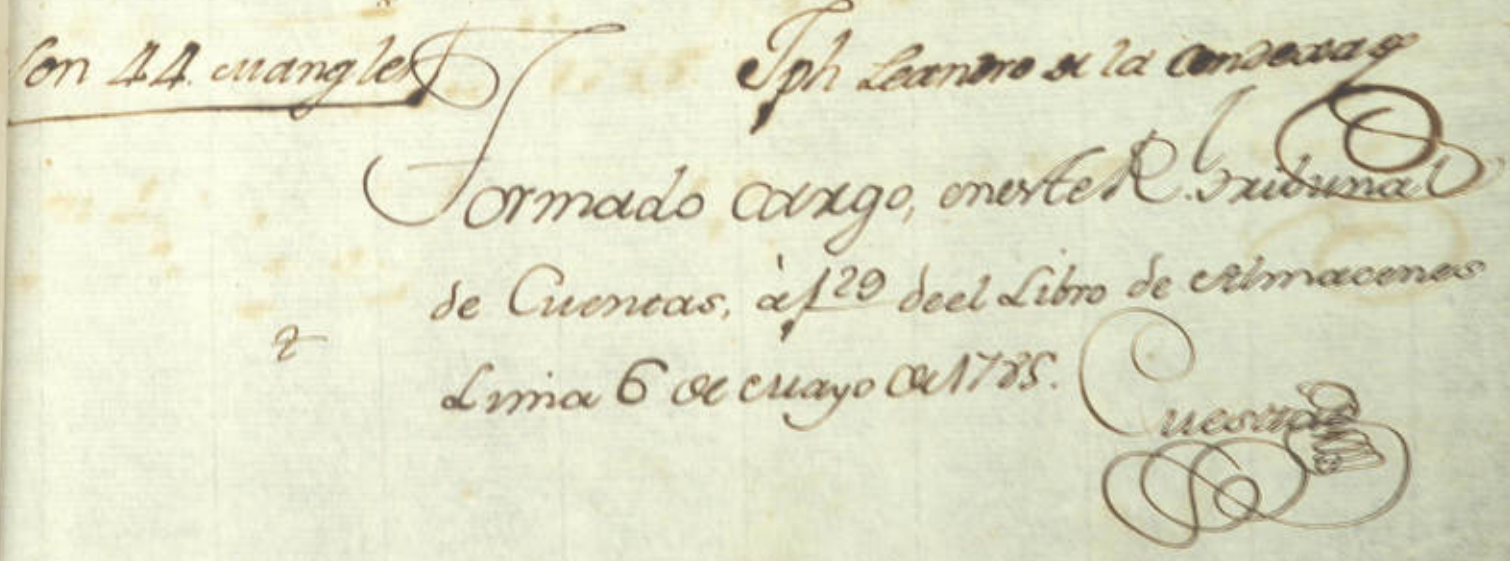 Son 44. Mangles
Jph Leandro de la
Formado cargo, en este Rl. Tribunal
de Cuentas, à f 29 deel Libro de Almacenes
Lima 6 de Mayo de 1785.
Cuesta